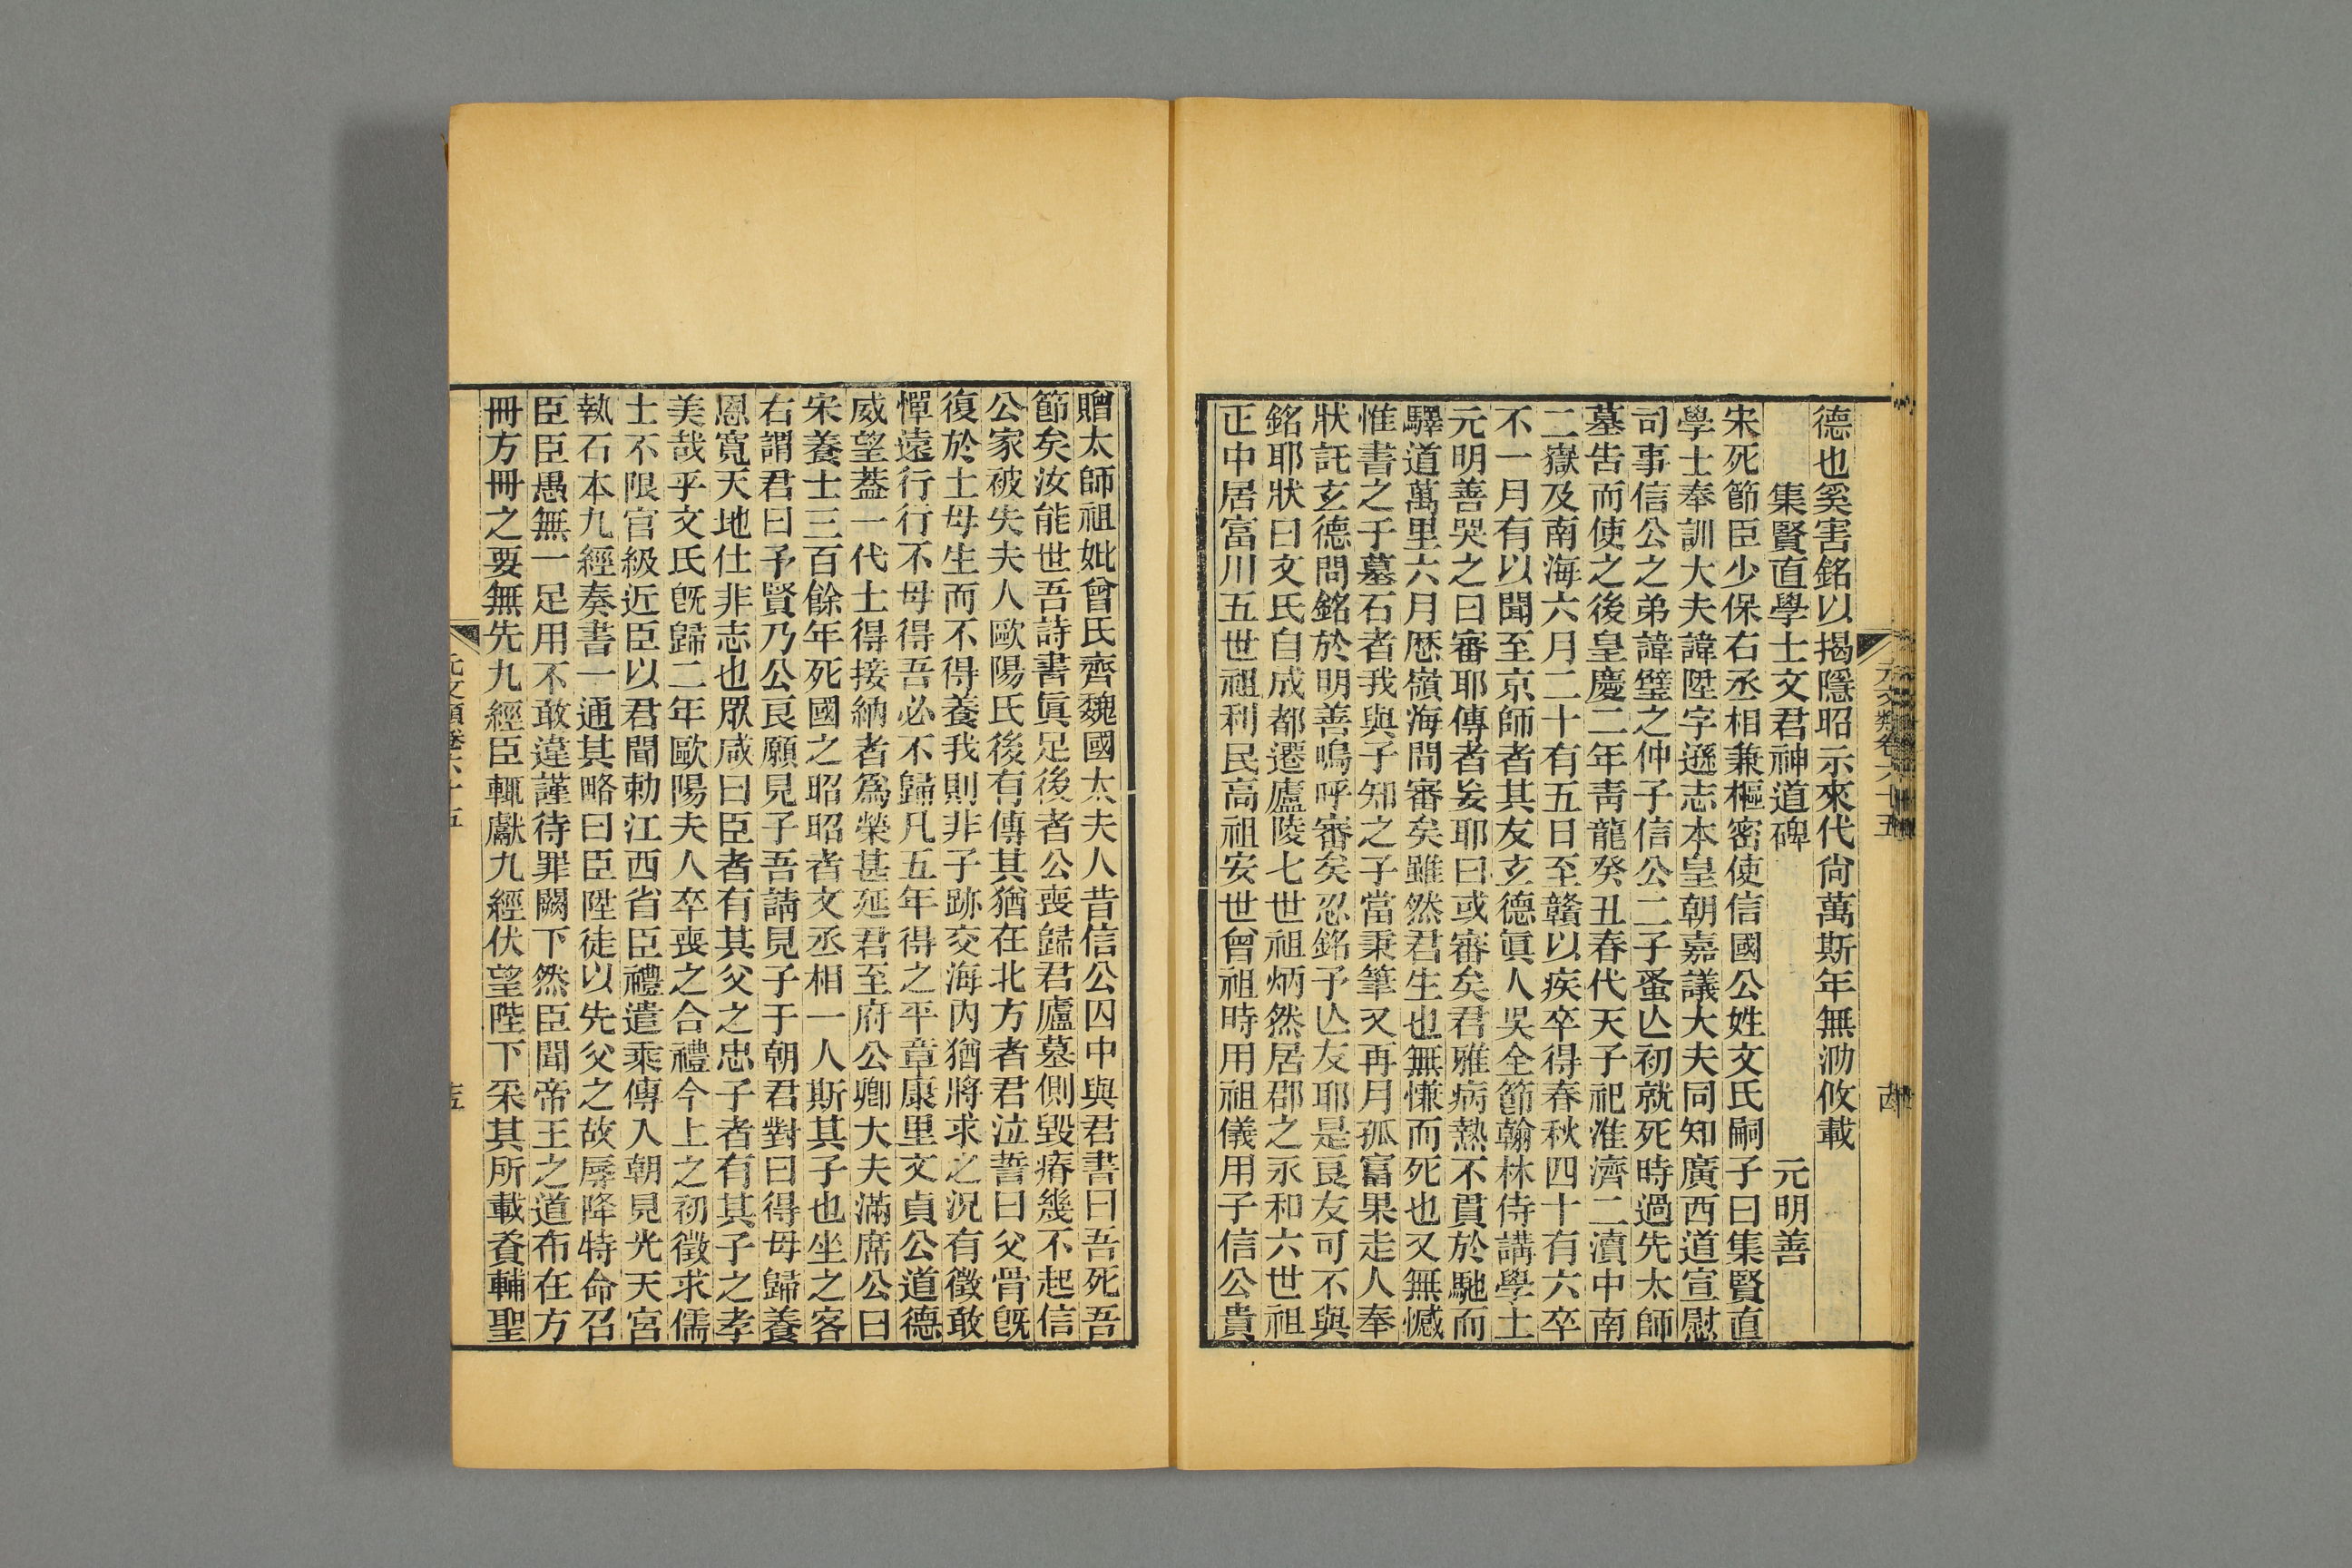 德也奚害銘以揭隱昭示來代尙萬斯年無泐攸載
集賢直學士文君神道碑 元明善
宋死節臣少保右丞相兼樞密使信國公姓文氏嗣子曰集賢直
學士奉訓大夫諱陞字遜志本皇朝嘉議大夫同知廣西道宣慰
司事信公之弟諱璧之仲子信公二子蚤亾初就死時過先太師
墓告而使之後皇慶二年靑龍癸丑春代天子祀淮濟二瀆中南
二嶽及南海六月二十有五日至贛以疾卒得春秋四十有六卒
不一月有以聞至京師者其友玄德眞人吳全節翰林侍講學士
元明善哭之曰審耶傳者妄耶曰或審矣君雅病熱不貫於馳而
驛道萬里六月歷嶺海間審矣雖然君生也無慊而死也又無憾
惟書之于墓石者我與子知之子當秉筆又再月孤富果走人奉
狀託玄德問銘於明善嗚呼審矣忍銘予亾友耶是良友可不與
銘耶狀曰文氏自成都遷廬陵七世祖炳然居郡之永和六世祖
正中居富川五世祖利民高祖安世曾祖時用祖儀用子信公貴
元文類卷六十五
贈太師祖妣曾氏齊魏國太夫人昔信公囚中與君書曰吾死吾
節矣汝能世吾詩書眞足後者公喪歸君廬墓側毀瘠幾不起信
公家被失夫人歐陽氏後有傳其猶在北方者君泣誓曰父骨旣
復於土母生而不得養我則非子跡交海內猶將求之況有徵敢
憚遠行行不母得吾必不歸凡五年得之平章康里文貞公道德
威望蓋一代士得接納者爲榮甚延君至府公卿大夫滿席公曰
宋養士三百餘年死國之昭昭者文丞相一人斯其子也坐之客
右謂君曰予賢乃公良願見子吾請見子于朝君對曰得母歸養
恩寬天地仕非志也眾咸曰臣者有其父之忠子者有其子之孝
美哉乎文氏旣歸二年歐陽夫人卒喪之合禮今上之初徵求儒
士不限官級近臣以君聞勅江西省臣禮遣乘傳入朝見光天宮
執石本九經奏書一通其略曰臣陞徒以先父之故辱降特命召
臣臣愚無一足用不敢違謹待罪闕下然臣聞帝王之道布在方
冊方冊之要無先九經臣輒獻九經伏望陛下采其所載資輔聖